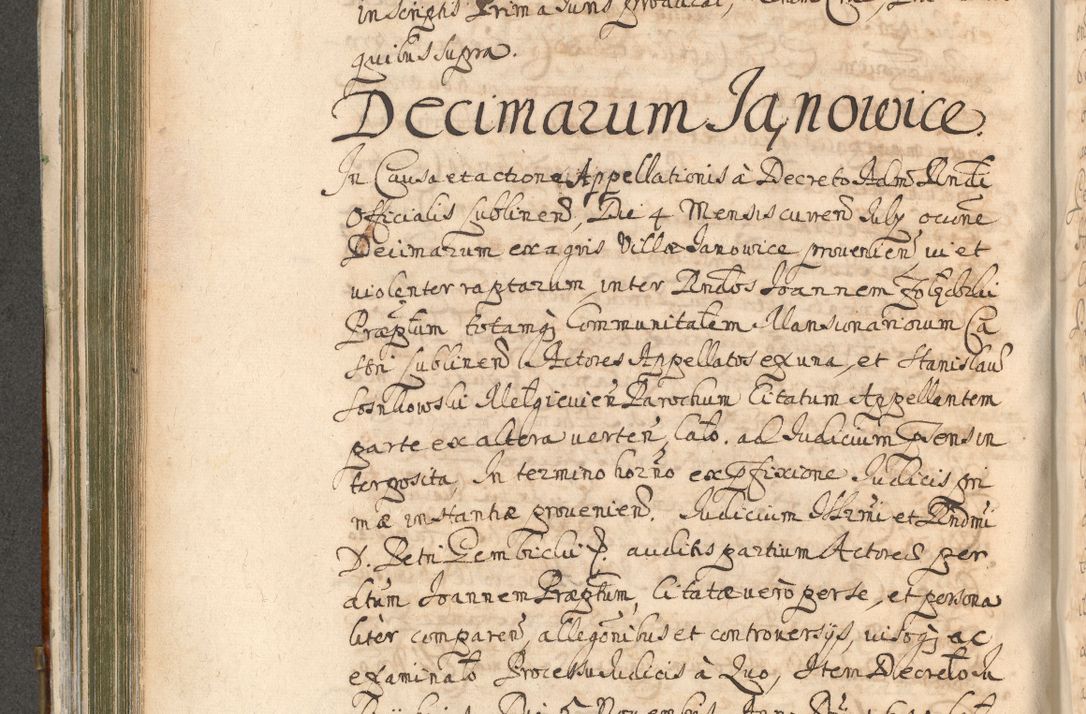 in scriptis Prima Juris producat,
quibus supra.
Decimarum Janowice.
In Causa et actione Appellationis à Decreto Adm Rndi
Officialis Lublinen, Die 4 Mensis curren July occne
Decimarum ex agris Villæ Janowice provenien vi et
violenter raptarum, inter Rndos Joannem
Præptum totamq Communitatem Mansionariorum Ca
stri Lublinen Actores Appellatos ex una, et Stanislau
Sosnkowski Melgievien Parochum Citatum Appellantem
parte ex altera verten, lato. ad Judicium psens in
terposita, In termino horno ex pfixione Judicis pri
mæ instantiæ provenien. Judicium Illrmi et Rndmi
D. Petri Gembicki P. auditis partium Actorea per
dtum Joannem Præptum, Citatæ vero per se, et persona
liter comparen, allegonibus et controversijs, visoq ac
examinato Processu Judicis à Quo, Item Decreto Ju